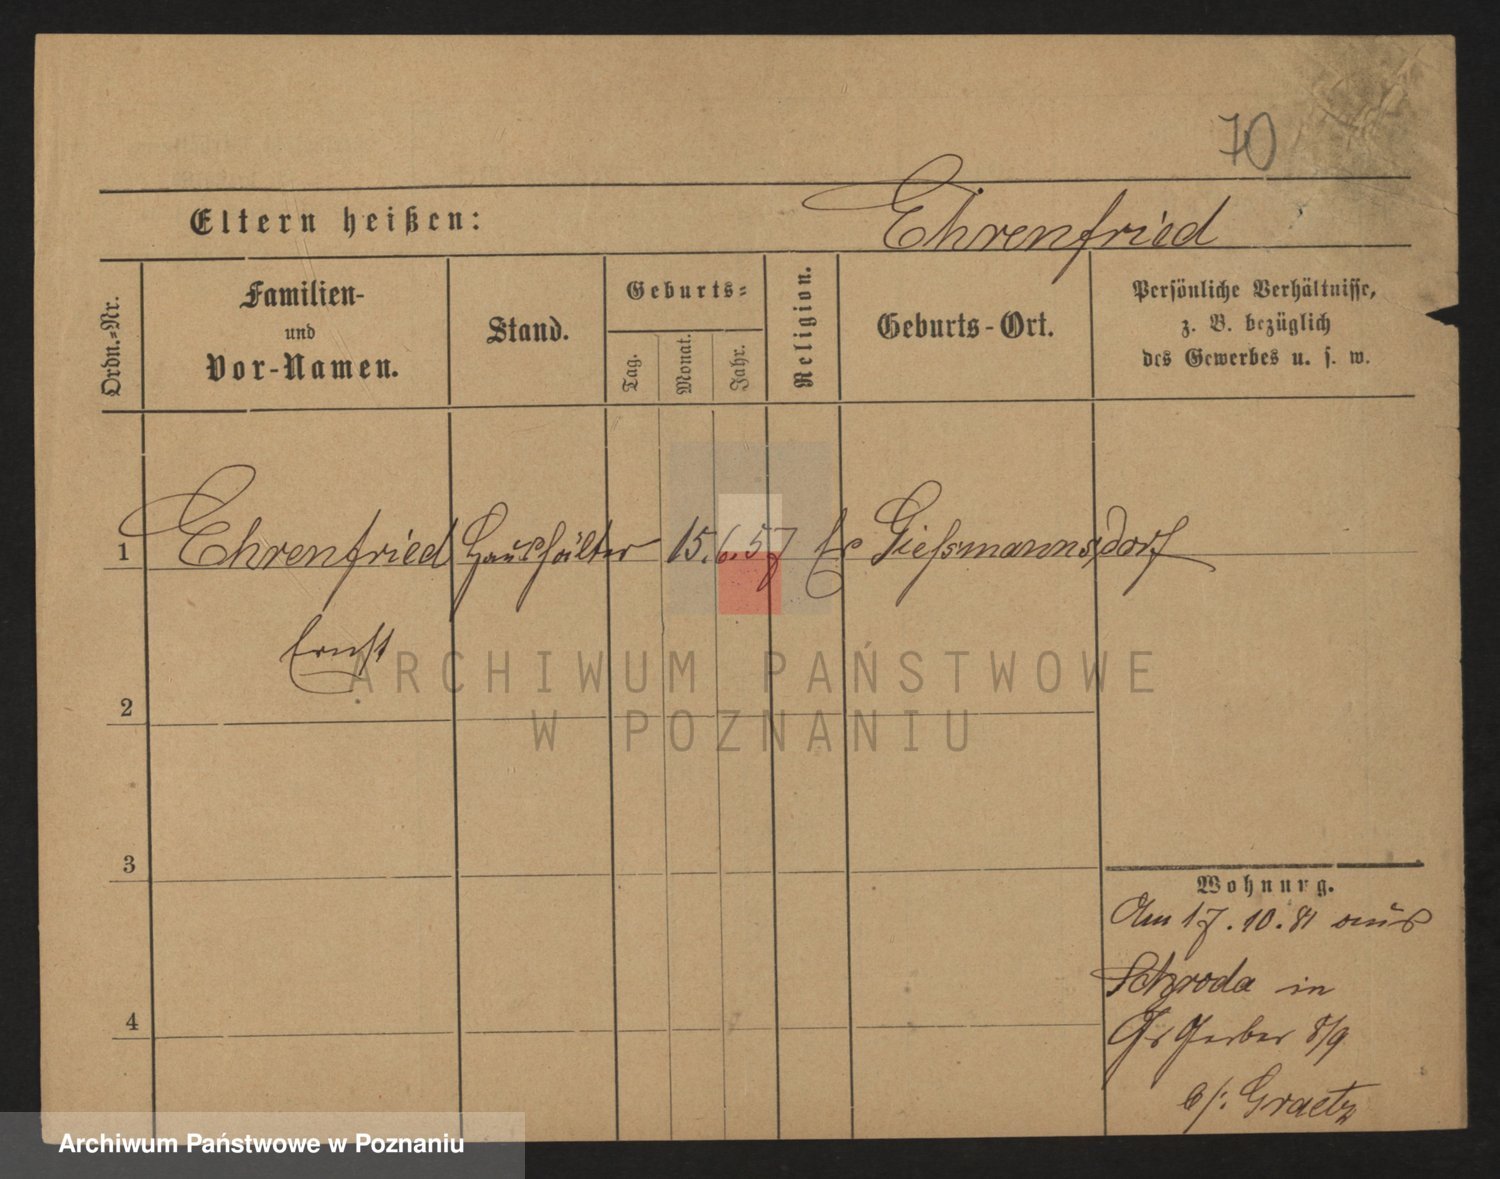 70
Eltern heißen: Ehrenfried
Ordn.-Nr.
Familien-
und
Vor-Namen.
Stand.
Geburts-
Tag.
Monat.
Jahr.
Religion.
Geburts-Ort.
Persönliche Verhältnisse,
z. B. bezüglich
des Gewerbes u. s. w.
1 Ehrenfried Haushälter 15. 6. 57 Giessmannsdorf
Ernst
2
3
4
Wohnung.
Am 17. 10. 81 aus
Schroda in
Gr Gerber 8/9
b/: Graetz
ARCHIWUM PAŃSTWOWE
W POZNANIU
Archiwum Państwowe w Poznaniu